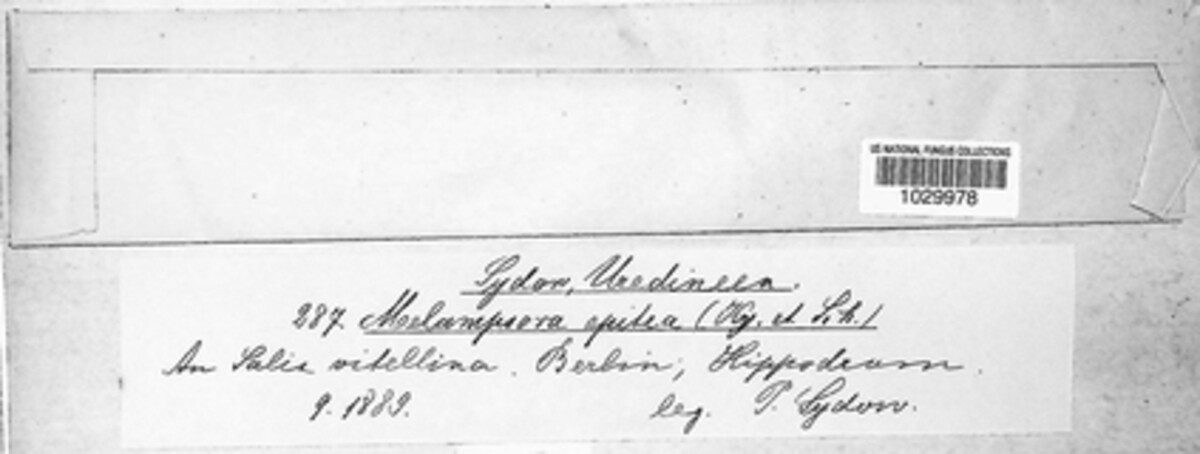 US NATIONAL FUNGUS COLLECTIONS
1029978
Sydow, Uredineen.
287. Melampsora epitea (Kz. et Sch.)
An Salix vitellina. Berlin; Hippodrom.
9. 1889. leg. P. Sydow.